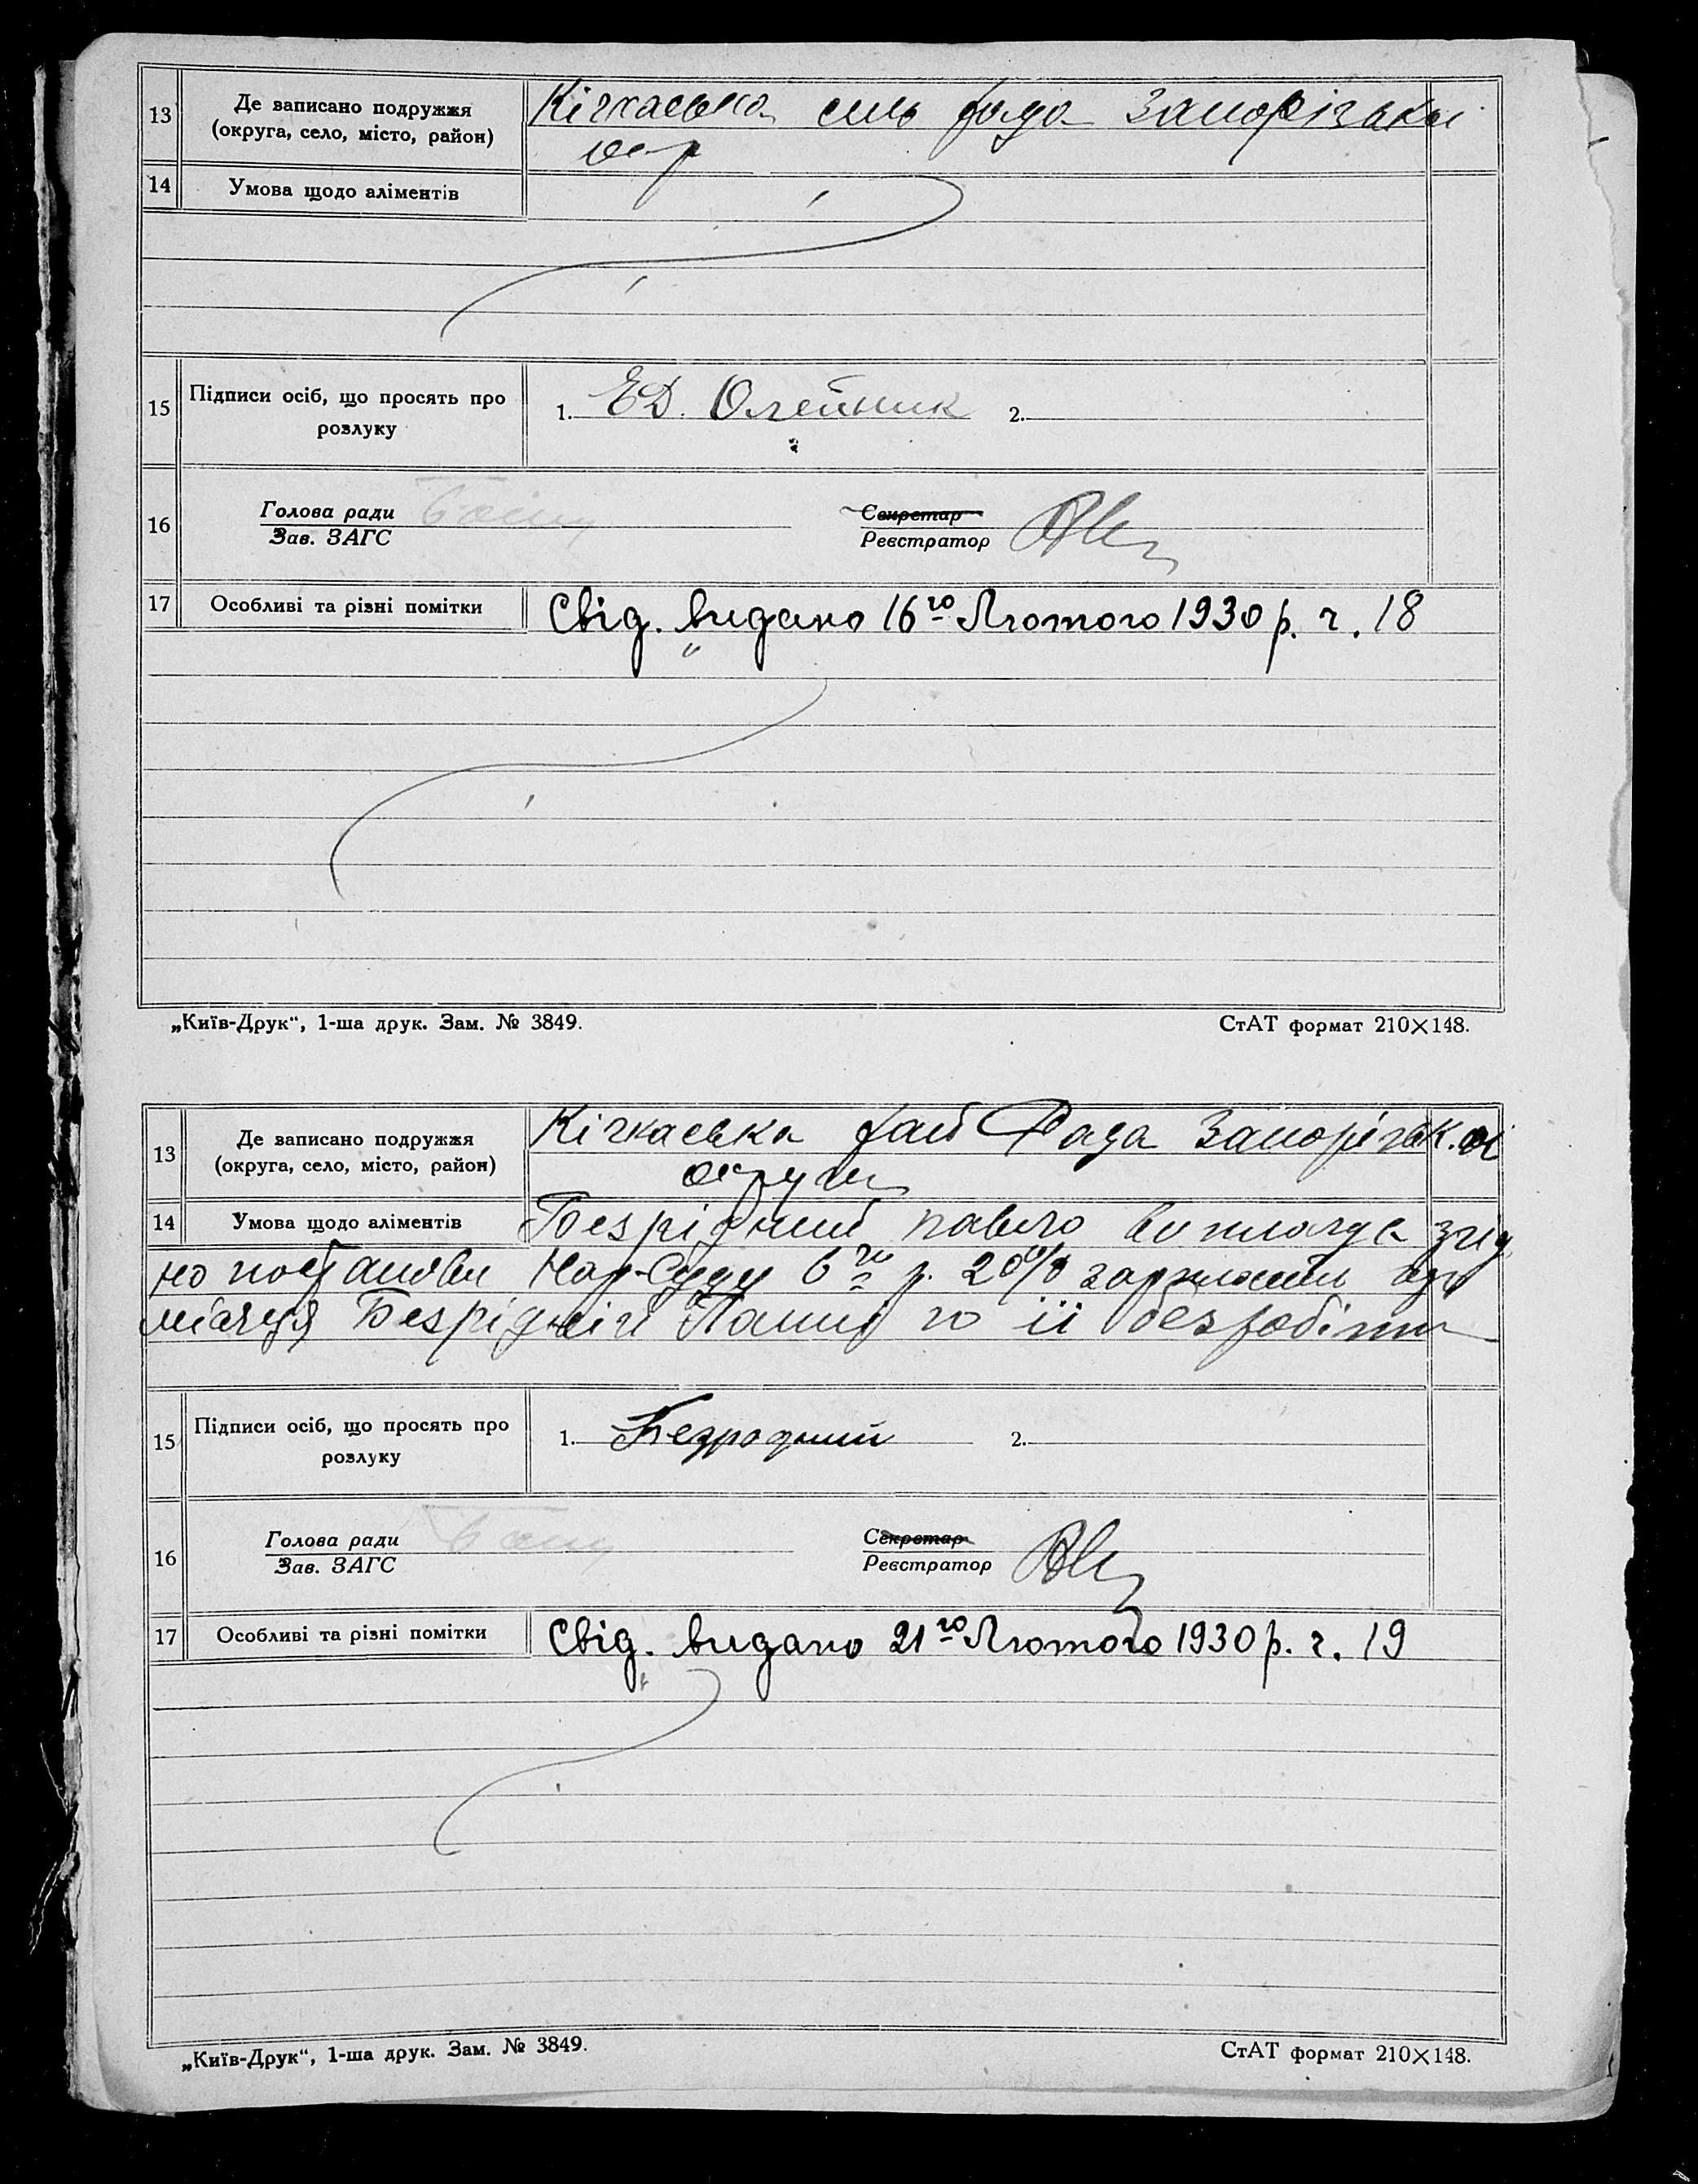 13 Де записано подружжя (округа, село, місто, район) Кічкаська сель рада Запорізької
окр
14 Умова щодо аліментів
15 Підписи осіб, що просять про розлуку 1. ЕД. Олейник 2.
16 Голова ради Секретар
Зав. ЗАГС Реєстратор
17 Особливі та різні помітки Свід. видано 16го Лютого 1930 р. ч. 18
„Київ-Друк“, 1-ша друк. Зам. № 3849. СтАТ формат 210×148.
13 Де записано подружжя (округа, село, місто, район) Кічкаська рай Рада Запорізьк.ої
округи
14 Умова щодо аліментів Безрідний павло виплачує згід
но постанови Нар-Суду 6го р. 20%
місяця Безрідній її безробіття
15 Підписи осіб, що просять про розлуку 1. Безродний 2.
16 Голова ради Секретар
Зав. ЗАГС Реєстратор
17 Особливі та різні помітки Свід. видано 21го Лютого 1930 р. ч. 19
„Київ-Друк“, 1-ша друк. Зам. № 3849. СтАТ формат 210×148.